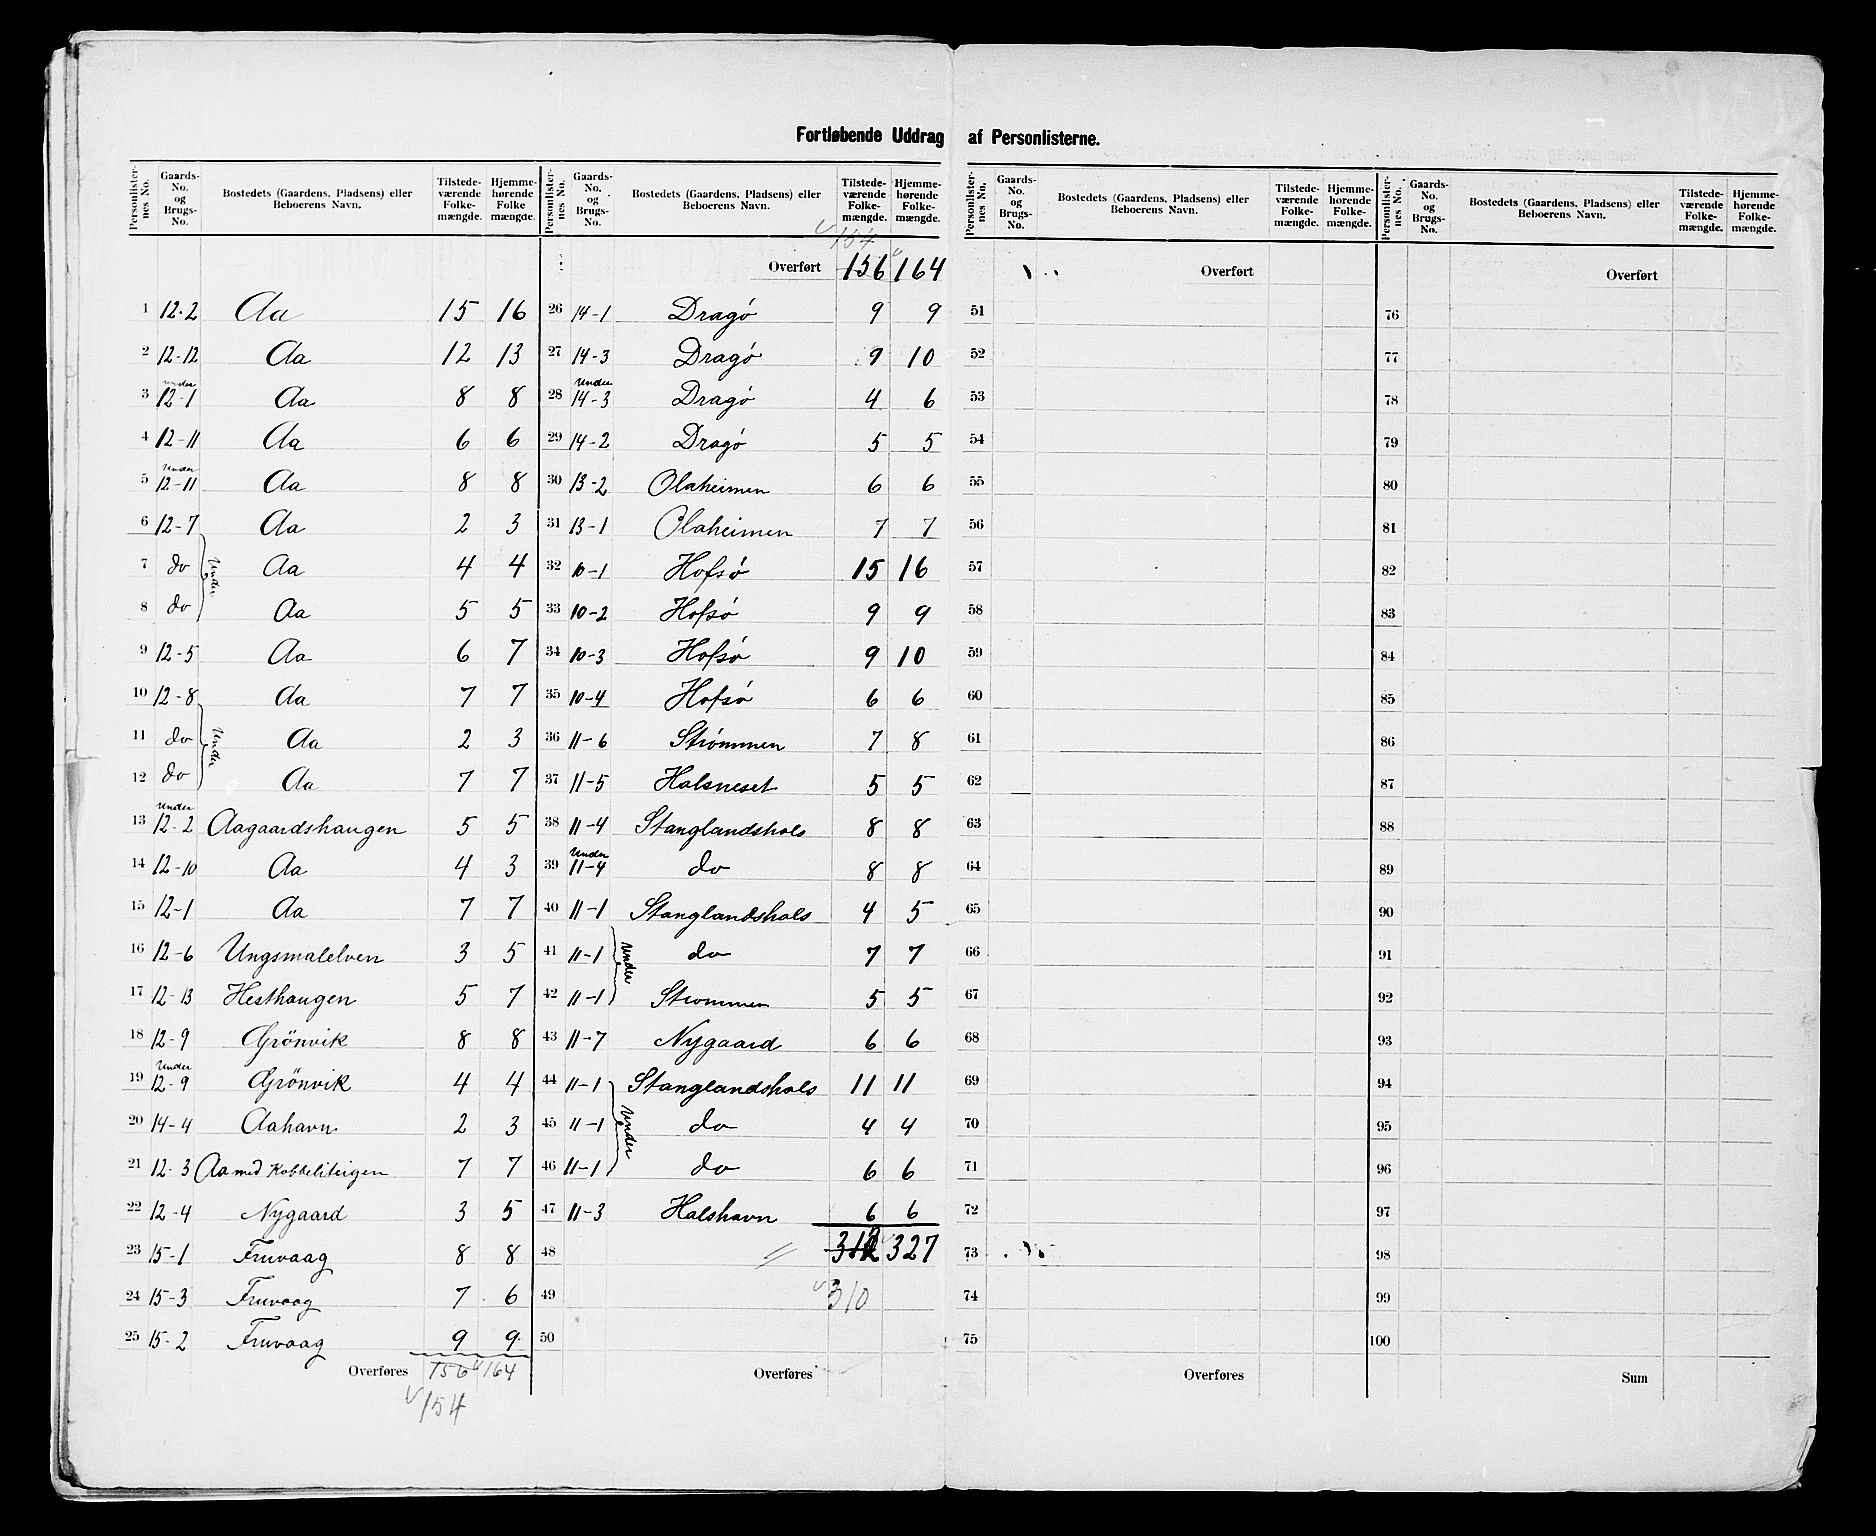 Fortløbende Uddrag af Personlisterne.
Personlister-nes No. Gaards-No. og Brugs-No. Bostedets (Gaardens, Pladsens) eller Beboerens Navn. Tilstede-værende Folke-mængde. Hjemme-hørende Folke mængde.
1 12-2 Aa 15 16
2 12-12 Aa 12 13
3 under 12-1 Aa 8 8
4 12-11 Aa 6 6
5 Under 12-11 Aa 8 8
6 12-7 Aa 2 3
7 do Under Aa 4 4
8 do Aa 5 5
9 12-5 Aa 6 7
10 12-8 Aa 7 7
11 do Under Aa 2 3
12 do Aa 7 7
13 Under 12-2 Aagaardshaugen 5 5
14 12-10 Aa 4 3
15 12-1 Aa 7 7
16 12-6 Ungsmalelven 3 5
17 12-13 Hesthaugen 5 7
18 12-9 Grönvik 8 8
19 Under 12-9 Grönvik 4 4
20 14-4 Aahavn 2 3
21 12-3 Aa med Kobbeliteigen 7 7
22 12-4 Nygaard 3 5
23 15-1 Fruvaag 8 8
24 15-3 Fruvaag 7 6
25 15-2 Fruvaag 9 9
Overføres 156 164
154
Personlister-nes No. Gaards-No. og Brugs-No. Bostedets (Gaardens, Pladsens) eller Beboerens Navn. Tilstede-værende Folke-mængde. Hjemme-hørende Folke-mængde.
154
Overført 156 164
26 14-1 Dragó 9 9
27 14-3 Dragó 9 10
28 Under 14-3 Dragó 4 6
29 14-2 Dragó 5 5
30 13-2 Olaheimen 6 6
31 13-1 Olaheimen 7 7
32 10-1 Hofsó 15 16
33 10-2 Hofsó 9 9
34 10-3 Hofsó 9 10
35 10-4 Hofsó 6 6
36 11-6 Strømmen 7 8
37 11-5 Halsneset 5 5
38 11-4 Stanglandshals 8 8
39 Under 11-4 do 8 8
40 11-1 Stanglandshals 4 5
41 11-1 Under do 7 7
42 11-1 Strommen 5 5
43 11-7 Nygaard 6 6
44 11-1 Stanglandshals 11 11
45 11-1 Under do 4 4
46 11-1 do 6 6
47 11-3 Halshavn 6 6
48 312 327
49 310
50
Overføres
Personlister-nes No. Gaards-No. og Brugs-No. Bostedets (Gaardens, Pladsens) eller Beboerens Navn. Tilstede-værende Folke-mængde. Hjemme-hørende Folke-mængde.
Overført
51
52
53
54
55
56
57
58
59
60
61
62
63
64
65
66
67
68
69
70
71
72
73
74
75
Overføres
Personlister-nes No. Gaards-No. og Brugs-No. Bostedets (Gaardens, Pladsens) eller Beboerens Navn. Tilstede-værende Folke-mængde. Hjemme-hørende Folke-mængde.
Overført
76
77
78
79
80
81
82
83
84
85
86
87
88
89
90
91
92
93
94
95
96
97
98
99
100
Sum